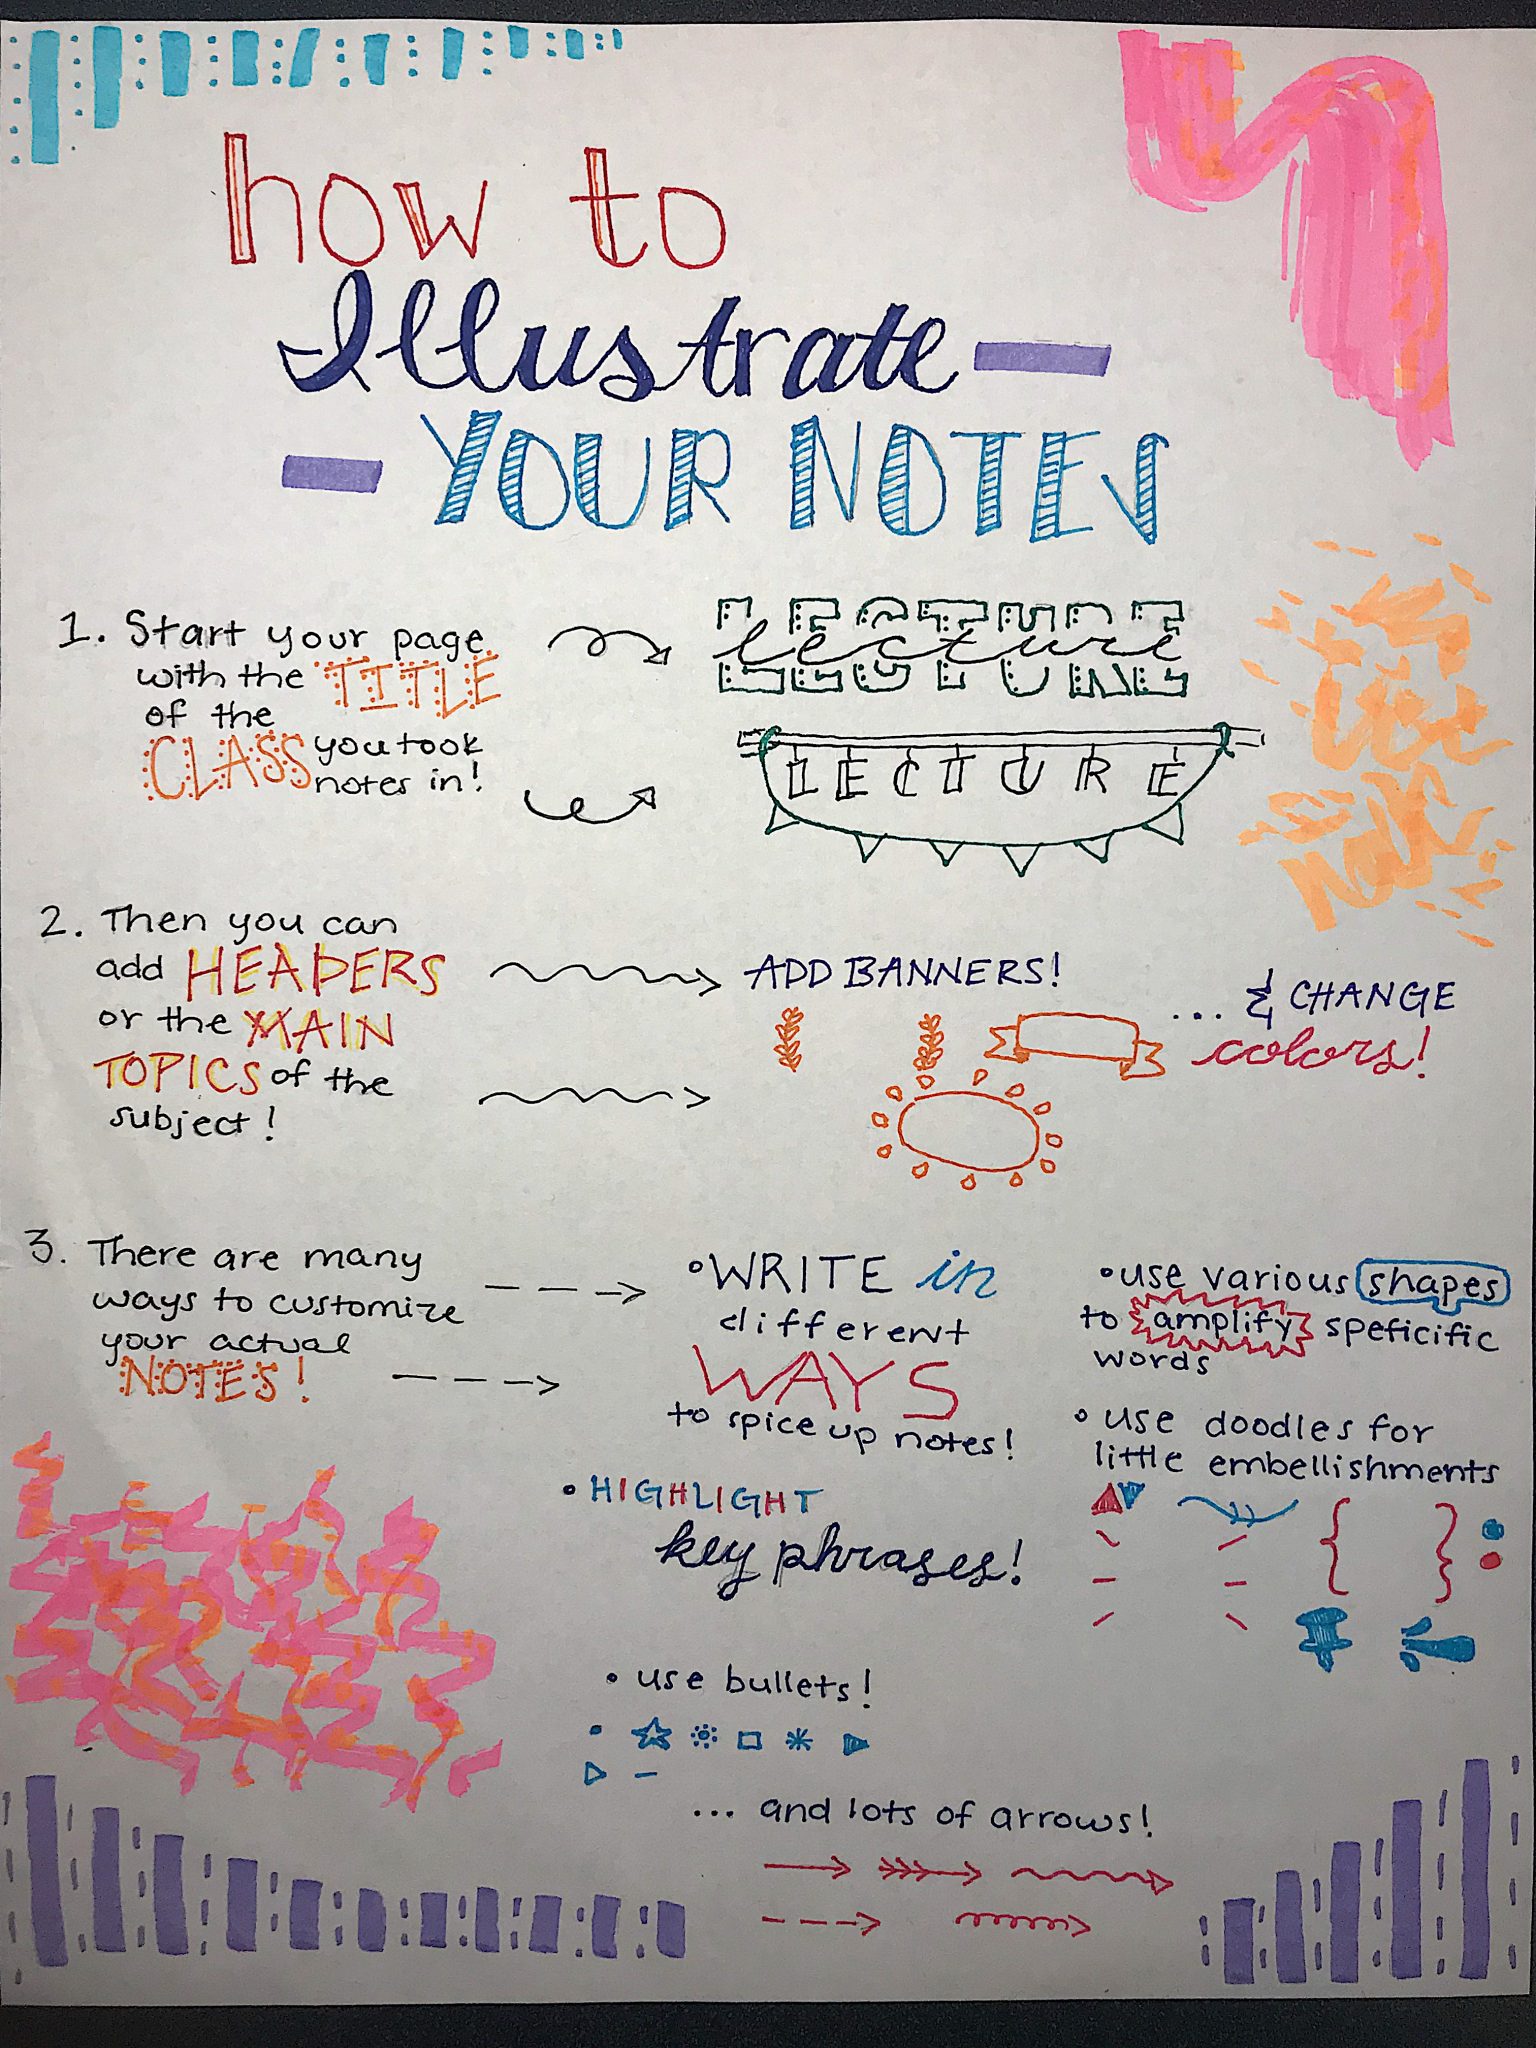 how to
Illustrate
YOUR NOTES
1. Start your page
with the TITLE
of the
CLASS you took
notes in!
LECTURE
lecture
LECTURE
2. Then you can
add HEADERS
or the MAIN
TOPICS of the
subject!
ADD BANNERS!
... & CHANGE
colors!
3. There are many
ways to customize
your actual
NOTES!
• WRITE in
different
WAYS
to spice up notes!
• HIGHLIGHT
key phrases!
• use bullets!
... and lots of arrows!
• use various shapes
to amplify speficific
words
• use doodles for
little embellishments